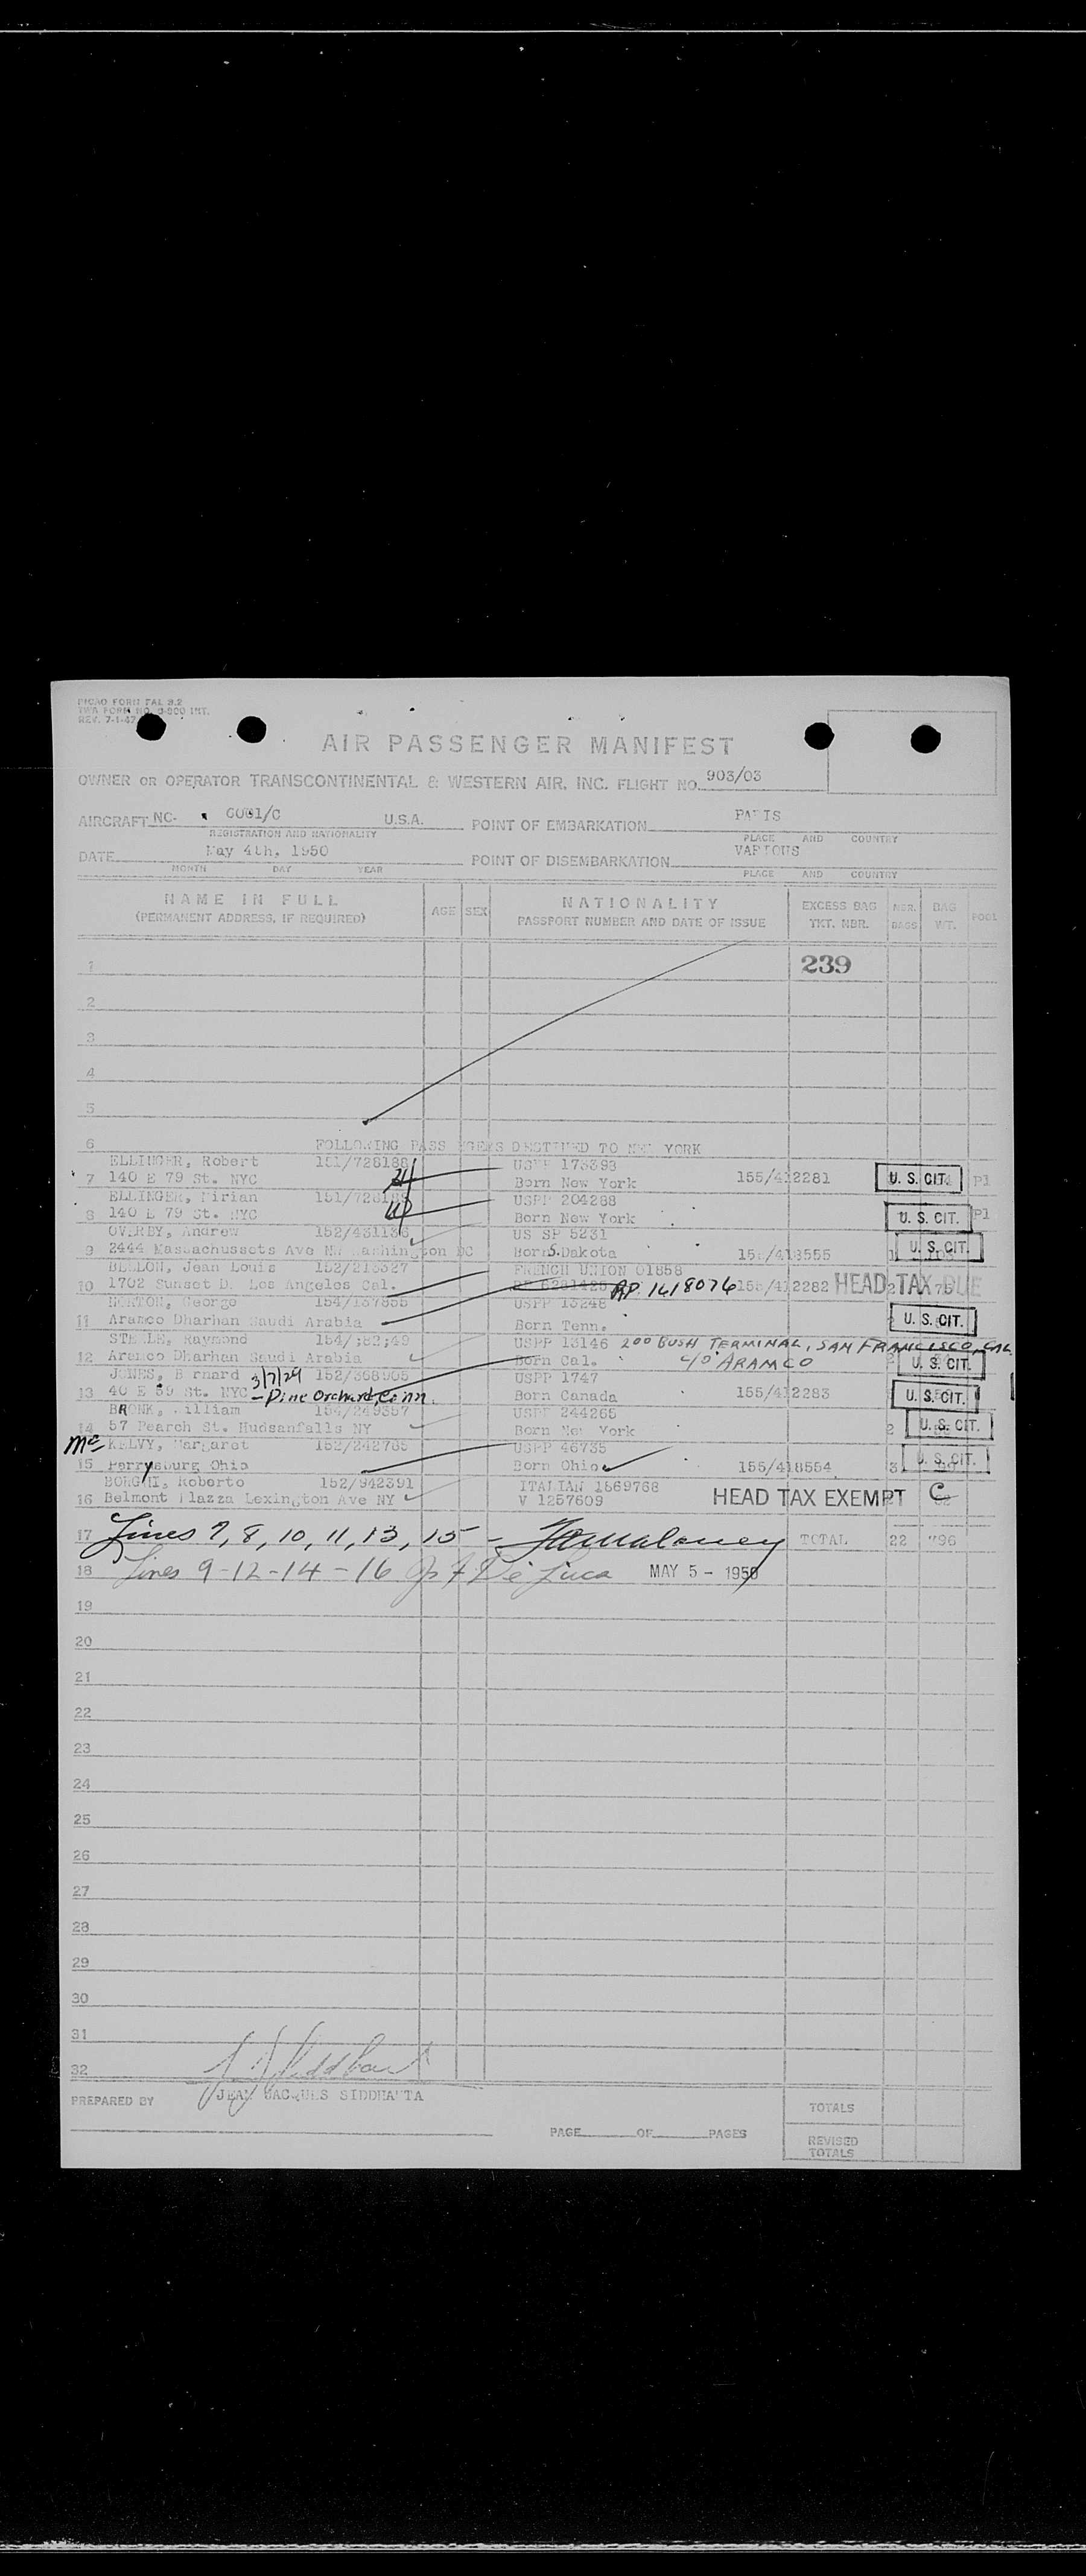 PICAO FORM FAL 3.2
TWA FORM NO. INT.
REV. 7-1-47
AIR PASSENGER MANIFEST
OWNER OR OPERATOR TRANSCONTINENTAL & WESTERN AIR, INC. FLIGHT NO. 903/03
AIRCRAFT NC- U.S.A. POINT OF EMBARKATION
REGISTRATION AND NATIONALITY PLACE AND COUNTRY
DATE May 4th, 1950 POINT OF DISEMBARKATION VARIOUS
MONTH DAY YEAR PLACE AND COUNTRY
NAME IN FULL AGE SEX NATIONALITY EXCESS BAG NBR. BAG POOL
(PERMANENT ADDRESS, IF REQUIRED) PASSPORT NUMBER AND DATE OF ISSUE TKT. NBR. BAGS WT.
1 239
2
3
4
5
6 FOLLOWING PASSENGERS DESTINED TO NEW YORK
ELLINGER, Robert 151/726188 USPP
7 140 E 79 St. NYC Born New York 155/412281 U. S. CIT. P1
ELLINGER, Mirian USPP 204288
8 140 E 79 St. NYC Born New York U. S. CIT. P1
OVERBY, Andrew US SP 5231
9 2444 Massachussets Ave NW Washington DC Born S. Dakota 155/413555 U. S. CIT.
BELLON, Jean Louis FRENCH UNION 01858
10 1702 Sunset B. Los Angeles Cal. RP 1418076 155/412282 HEAD TAX DUE
NORTON, George USPP 13248
11 Aramco Dharhan Saudi Arabia Born Tenn. U. S. CIT.
STEELE, Raymond USPP 13146 200 BUSH TERMINAL, SAN FRANCISCO, CAL
12 Aramco Dharhan Saudi Arabia Born Cal. C/O ARAMCO U. S. CIT.
JONES, Bernard 3/7/29 USPP 1747
13 40 E 59 St. NYC - Pine Orchard, Conn. Born Canada 155/412283 U. S. CIT.
BRONK, William 154/249357 USPP 244265
14 57 Pearch St. Hudsanfalls NY Born New York 2 U. S. CIT.
Mc KELVY, Margaret 152/242765 USPP 46735
15 Perrysburg Ohio Born Ohio 155/418554 3 U. S. CIT.
BORGHI, Roberto 152/942391 ITALIAN 1569768
16 Belmont Plazza Lexington Ave NY V 1257609 HEAD TAX EXEMPT C
17 Lines 7, 8, 10, 11, 13, 15 - TOTAL 22 796
18 Lines 9-12-14-16 De Luca MAY 5 - 1950
19
20
21
22
23
24
25
26
27
28
29
30
31
32
PREPARED BY JEAN JACQUES SIDDHARTA TOTALS
PAGE OF PAGES REVISED
TOTALS